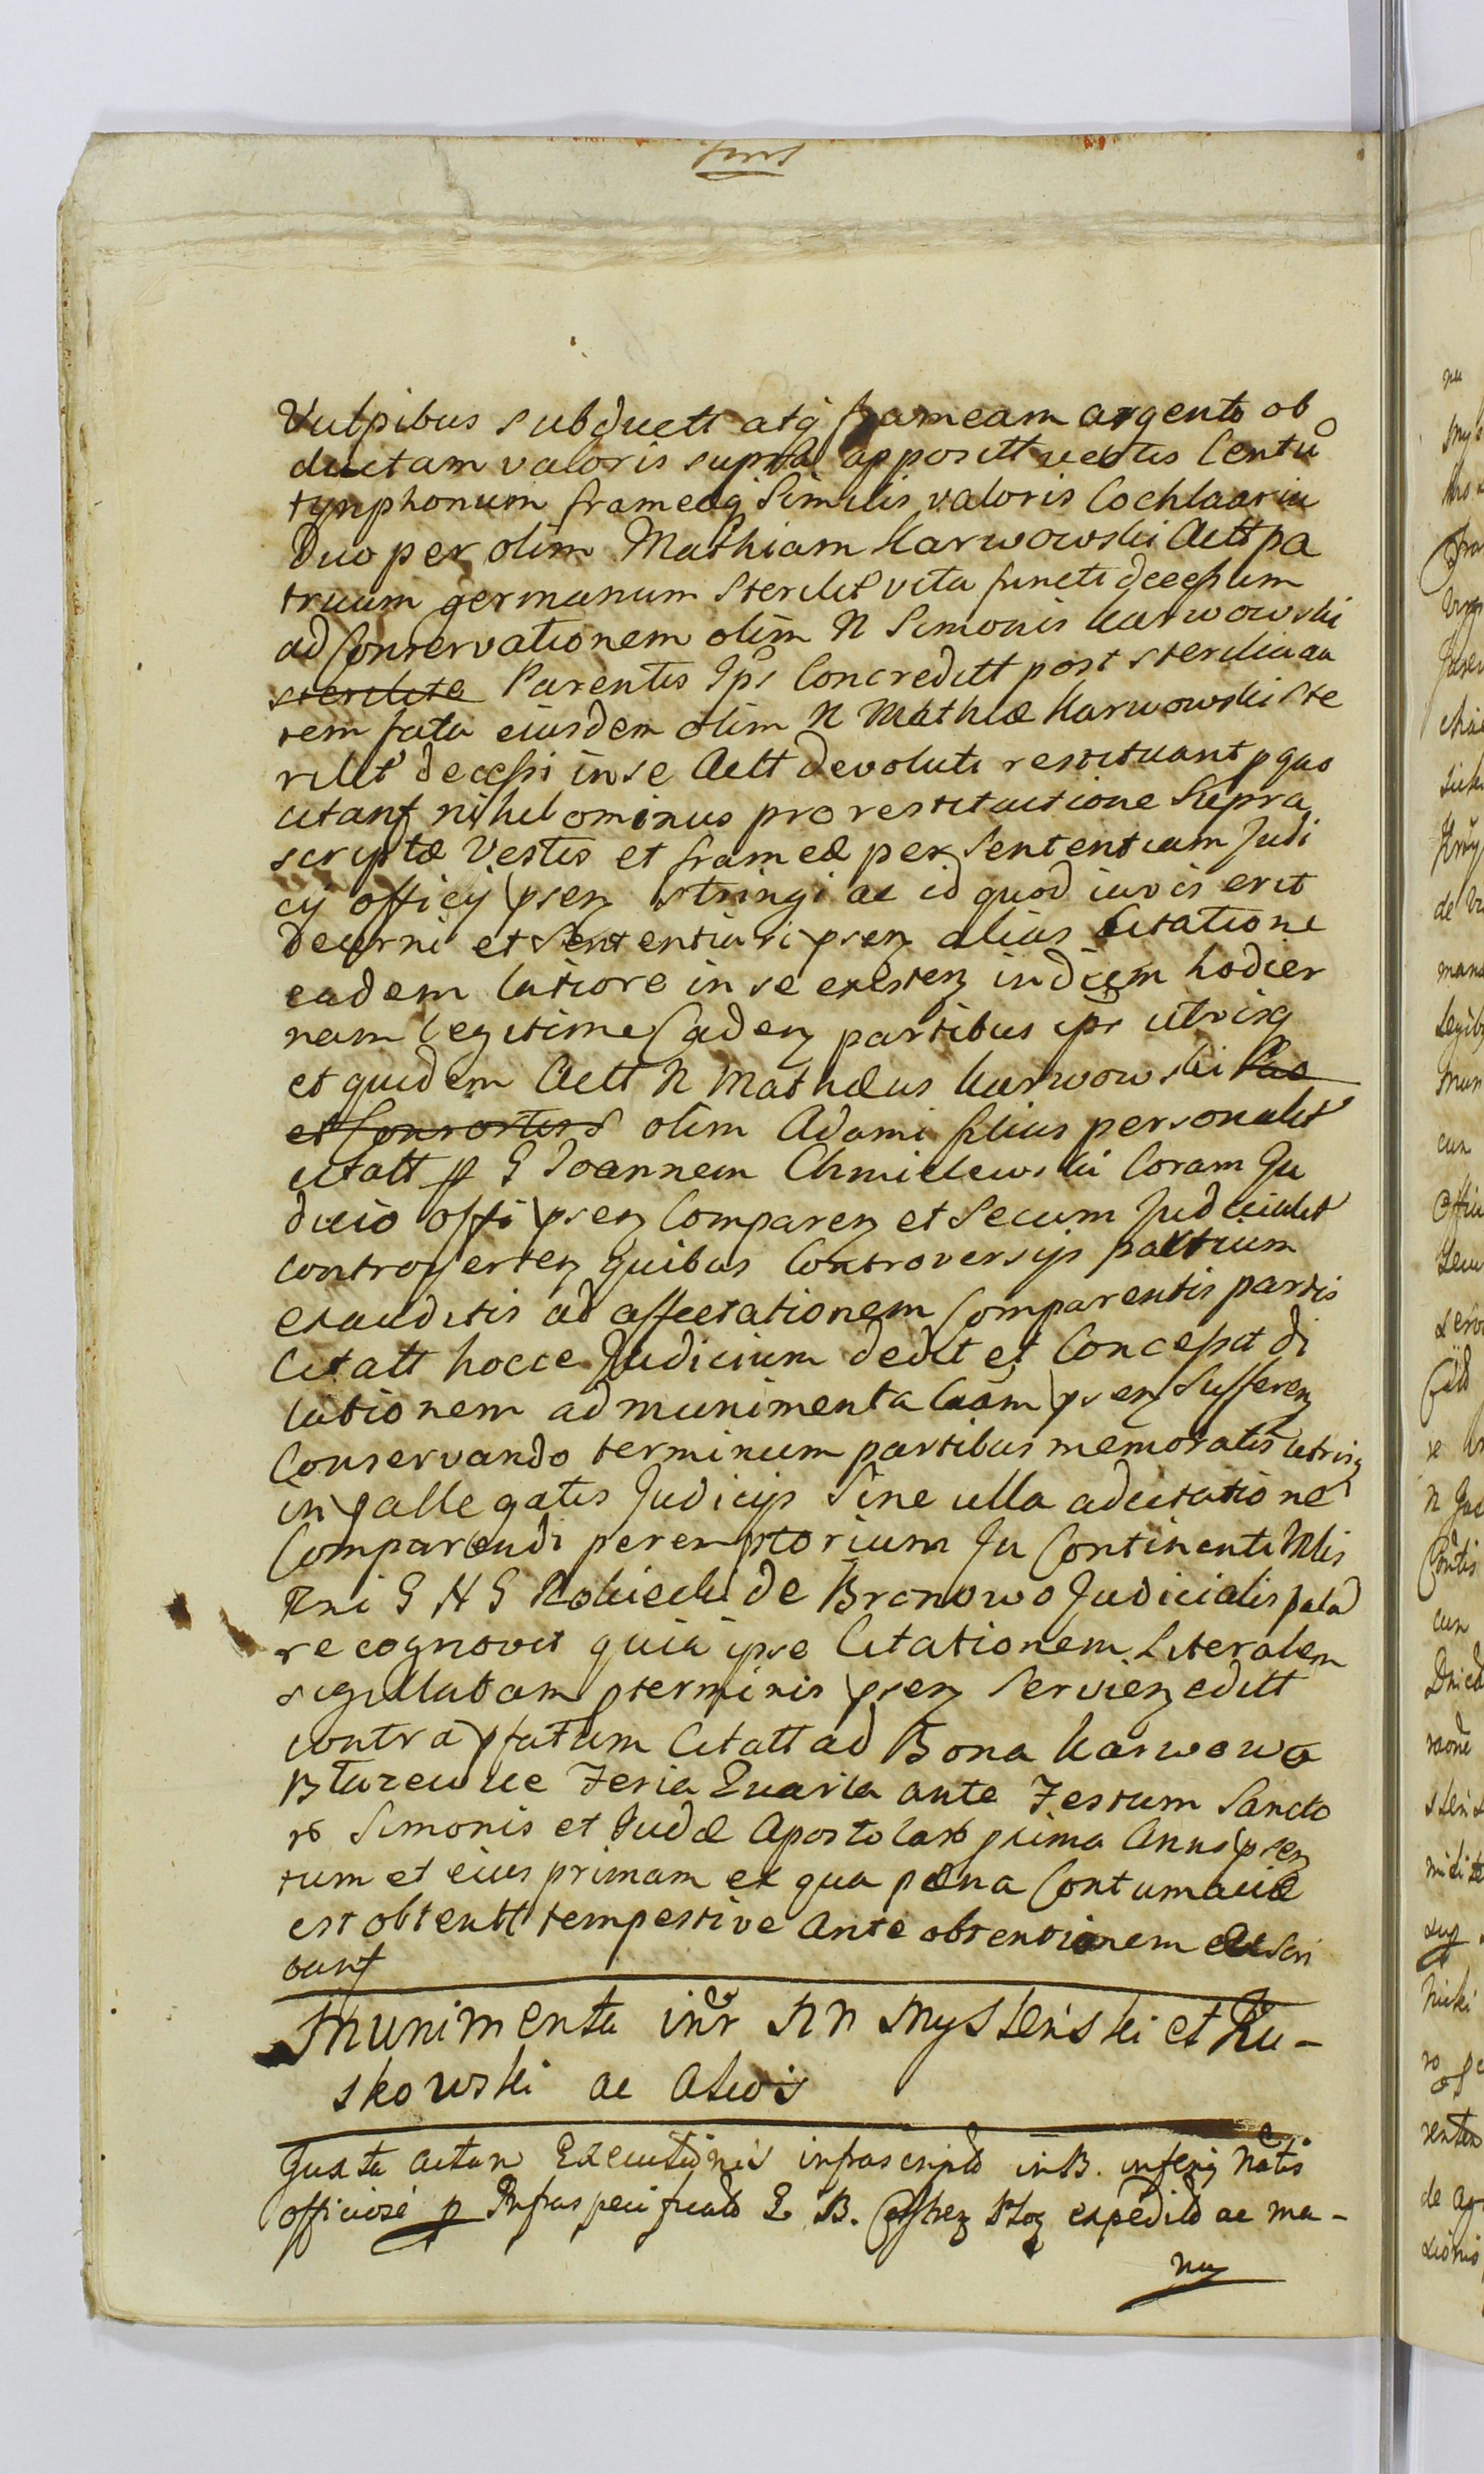 Vulpibus subductt atq frameam argento ob
ductam valoris supra appositt vestis Centũ
tynphonum frameaq similis valoris Cochlaaria
Duo per olim Mathiam Karwowski Actt pa
truum germanum sterilit vita functi decessum
ad Conservationem olim N Simonis Karwowski
sterilite Parentis Ips Concreditt post sterilia au
tem fata eiusdem olim N Mathiæ Karwowski ste
rilit decessi in se Actt devoluti restituant p quo
citant nihilominus pro restitutione supra
scriptæ Vestis et frameæ per Sententiam Judi
cij officij psen stringi ac id quod iuris erit
decerni et Sententiari psen alias Citatione
eadem latiore in se existen in diem hodier
nam legitime Caden partibus ips utrisq
et quidem Actt N Mathæus Karwowski
et Consortes olim Adami filius personalit
citatt p G Joannem Chmielewski Coram Ju
dicio offi psen Comparen et secum Judicialit
controverten quibus Controversijs partium
exauditis ad affectationem Comparentis partis
Citatt hocce Judicium dedit et Concessit di
lationem ad munimenta Caam psen Sufferen
Conservando terminum partibus memoratis utrisq
in pallegatis Judicijs Sine ulla adcitatione
Comparendi peremptorium In Continenti Mlis
Rni G H G Kobiecki de Bronowo Judicialis palad
recognovit quia ipse Citationem Literalem
sigillatam pterminis psen Servien editt
contra pfatum Citatt ad Bona Karwowo
Feria Quarta ante Festum Sancto
rũ Simonis et Judæ Apostolarũ prima Anni psen
tum et eius primam ex qua pæna Contumaciæ
est obtentt tempestive ante obtentionem
bunt
Munimenta intr NN Myslenski et Ru-
skowski ac Aliois
Juxta actun Executionis infrascripto in B. inferiq Natis
officiosè p Infraspecificato expedito ac ma-
nu